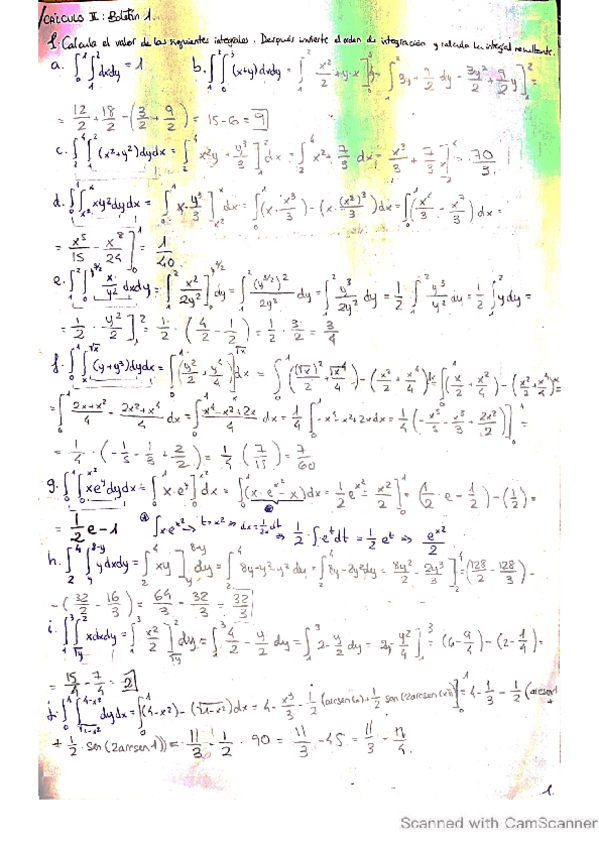 CÁLCULO II: Boletín 1.
1. Calcula el valor de las siguientes integrales. Después invierte el orden de integración y calcula la integral resultante.
a. ∫₀¹∫₁² dxdy = 1    b. ∫₁²∫₀³ (x+y) dxdy = ∫₁² x²/2 + y·x ]₀³ = ∫₁² 3y + 9/2 dy = 3y²/2 + 9/2 y ]₁² =
= 12/2 + 18/2 − (3/2 + 9/2) = 15 − 6 = 9
c. ∫₂⁴∫₁² (x²+y²) dydx = ∫₂⁴ x²y + y³/3 ]₁² dx = ∫₂⁴ x² + 7/3 dx = x³/3 + 7/3 x ]₂⁴ = 70/3.
d. ∫₀¹∫ₓ²ˣ xy² dydx = ∫₀¹ x·y³/3 ] dx = ∫₀¹ (x·x³/3) − (x·(x²)³/3) dx = ∫₀¹ (x⁴/3 − x⁷/3) dx =
= x⁵/15 − x⁸/24 ]₀¹ = 1/40.
e. ∫₁²∫₀ x/y² dxdy = ∫₁² x²/2y² ] dy = ∫₁² (y^(3/2))²/2y² dy = ∫₁² y³/2y² dy = 1/2 ∫₁² y³/y² dy = 1/2 ∫₁² y dy =
= 1/2 · y²/2 ]₁² = 1/2 · (4/2 − 1/2) = 1/2 · 3/2 = 3/4
f. ∫₀¹∫ₓ^√x (y+y³) dydx = ∫₀¹ (y²/2 + y⁴/4) ] dx = ∫₀¹ ((√x)²/2 + √x⁴/4) − (x²/2 + x⁴/4) dx = ∫₀¹ (x/2 + x²/4) − (x²/2 + x⁴/4) =
= ∫₀¹ 2x+x²/4 − 2x²+x⁴/4 dx = ∫₀¹ −x⁴−x²+2x/4 dx = 1/4 ∫₀¹ −x⁴−x²+2x dx = 1/4 (−x⁵/5 − x³/3 + 2x²/2) ]₀¹ =
= 1/4 · (−1/5 − 1/3 + 2/2) = 1/4 (7/15) = 7/60
g. ∫₀¹∫₀^x² xe^y dydx = ∫₀¹ x·e^y ] dx = ∫₀¹ (x·e^x² − x) dx = 1/2 e^x² − x²/2 ]₀¹ = (1/2·e − 1/2) − (1/2) =
= 1/2 e − 1    ∫xe^x² → t=x² ⇒ dx = 1/2x dt ⇒ 1/2 · ∫e^t dt = 1/2 e^t ⇒ e^x²/2
h. ∫₂⁴∫ᵧ^(8−y) y dxdy = ∫₂⁴ xy ]ᵧ^(8−y) dy = ∫₂⁴ 8y−y²−y² dy = ∫₂⁴ 8y−2y² dy = 8y²/2 − 2y³/3 ]₂⁴ = (128/2 − 128/3) −
− (32/2 − 16/3) = 64/3 − 32/3 = 32/3
i. ∫₁³∫_√y² x dxdy = ∫₁³ x²/2 ]_√y² dy = ∫₁³ 4/2 − y/2 dy = ∫₁³ 2 − y/2 dy = 2y − y²/4 ]₁³ = (6 − 9/4) − (2 − 1/4) =
= 15/4 − 7/4 = 2
j. ∫₀¹∫_√(1−x²)^(4−x²) dydx = ∫₀¹ (4−x²) − (√1−x²) dx = 4 − x³/3 − 1/2 (arcsen(x) + 1/2 sen(2arcsen(x))) ]₀¹ = 4 − 1/3 − 1/2 (arcsen1
+ 1/2 · sen(2arcsen1)) = 11/3 − 1/2 · 90 = 11/3 − 45 = 11/3 − π/4.
1.
Scanned with CamScanner